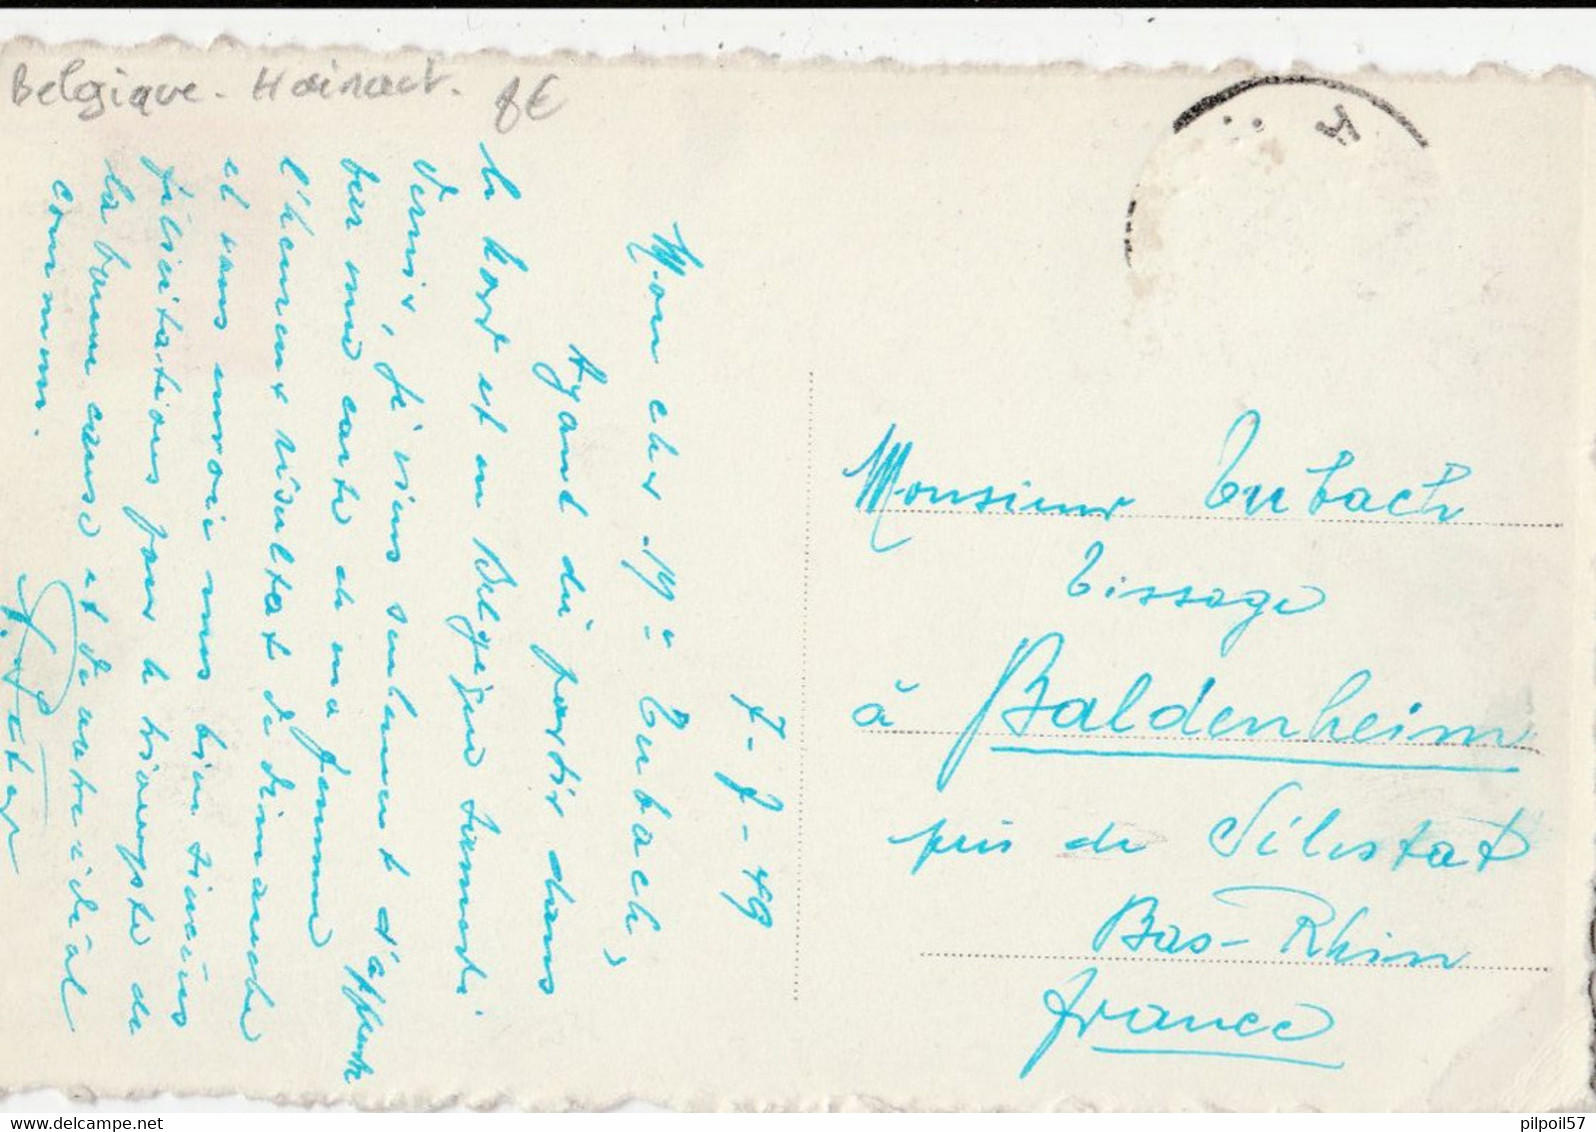 Belgique - Hainaut. 8€
7-7-49
Mon cher Mr Turbach,
Ayant dû partir dans
le nord et en Belgique samedi
dernier, je viens seulement d'apprendre
par une carte de ma femme
l'heureux résultat de dimanche
et vous envoie mes bien sincères
félicitations pour le triomphe de
la bonne cause et de notre idéal
commun.
Monsieur Turbach
Tissage
à Baldenheim
près de Sélestat
Bas-Rhin
France
pilpoil57